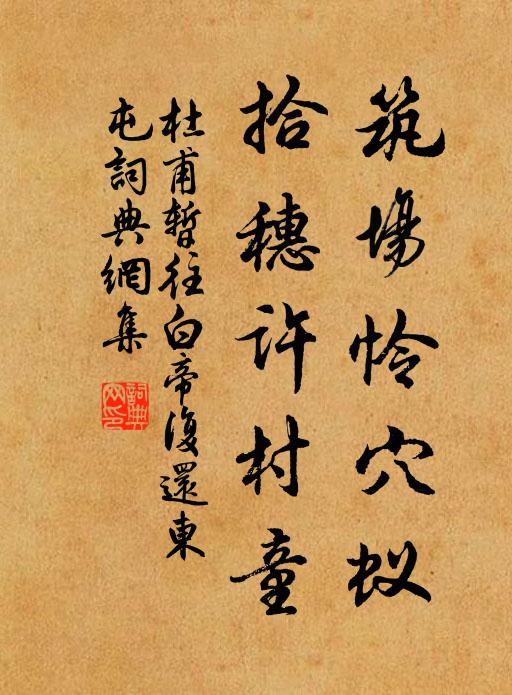 筑場怜穴蚁
拾穗许村童
杜甫暫往白帝復還東
屯詞典網集
詞典
网印